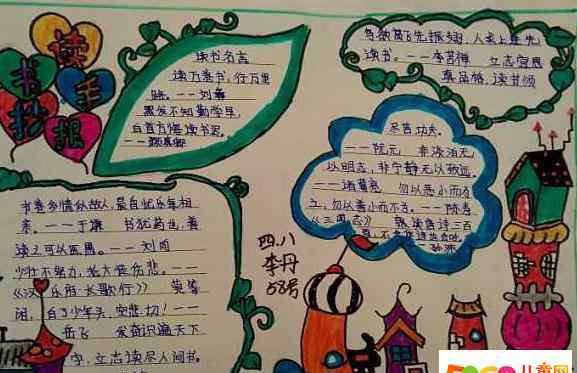 读书手抄报
读书名言
读万卷书，行万里
路。——刘彝
黑发不知勤学早，
白首方悔读书迟。
——颜真卿
鸟欲高飞先振翅，人求上进先
读书。——李苦禅 立志宜思
真品格，读书须
尽苦功夫。
——阮元 非淡泊无
以明志，非宁静无以致远。
——诸葛亮 勿以恶小而为
之，勿以善小而不为。——陈寿
《三国志》 熟读唐诗三百
书卷多情似故人，晨昏忧乐每相
亲。——于谦 书犹药也，善
读之可以医愚。——刘向
少壮不努力，老大徒伤悲。——
《汉乐府·长歌行》 莫等
闲，白了少年头，空悲切！——
岳飞 发奋识遍天下
字，立志读尽人间书。
四.八
李丹
58号
儿童网